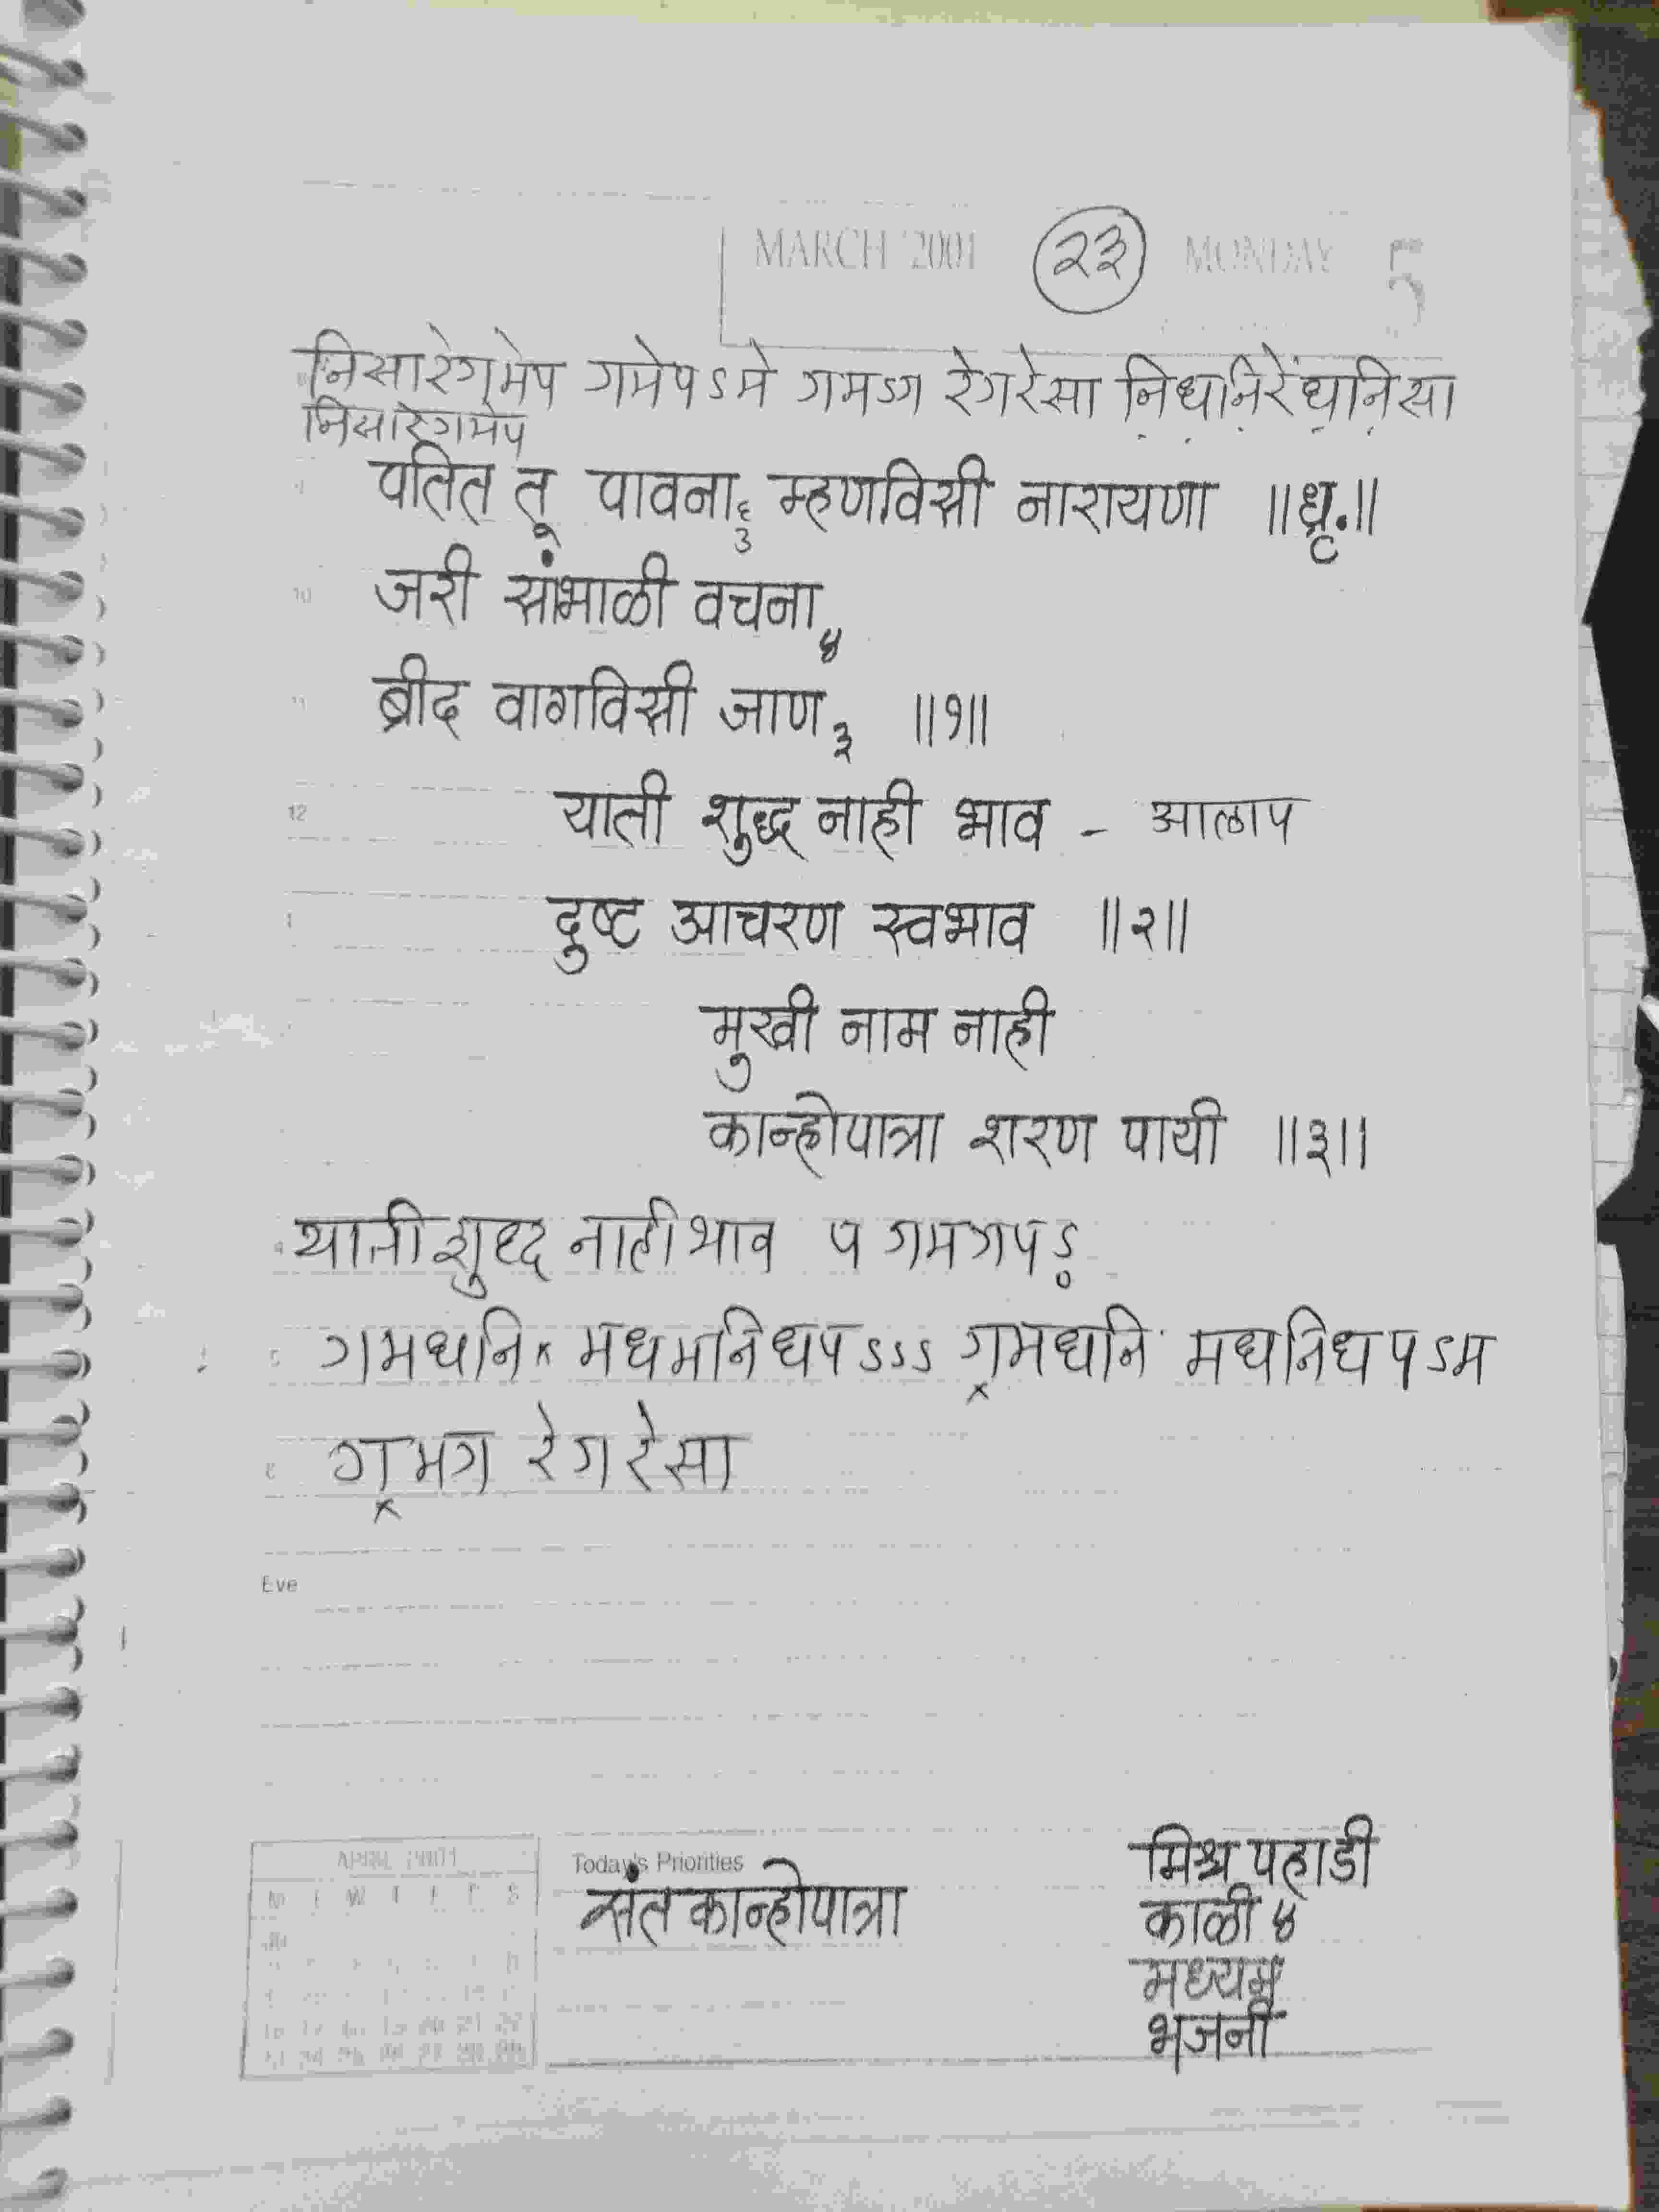 MARCH 2001 २३ MONDAY 5
निसारेगमेप गमेपऽमे गमऽग रेगरेसा निधनिरेधनिसा
निसारेगमेप
पतित तू पावना३ म्हणविसी नारायणा ॥धृ.॥
10 जरी सांभाळी वचना४
11 ब्रीद वागविसी जाण३ ॥१॥
12 याती शुद्ध नाही भाव - आलाप
1 दुष्ट आचरण स्वभाव ॥२॥
मुखी नाम नाही
कान्होपात्रा शरण पायी ॥३॥
याती शुद्ध नाही भाव प गमगपऽ
गमधनि मधमनिधपऽऽऽ गमधनि मधनिधपऽम
गमग रेगरेसा
Eve
APRIL 2001
Today's Priorities
संत कान्होपात्रा
मिश्र पहाडी
काळी ४
मध्यम
भजनी